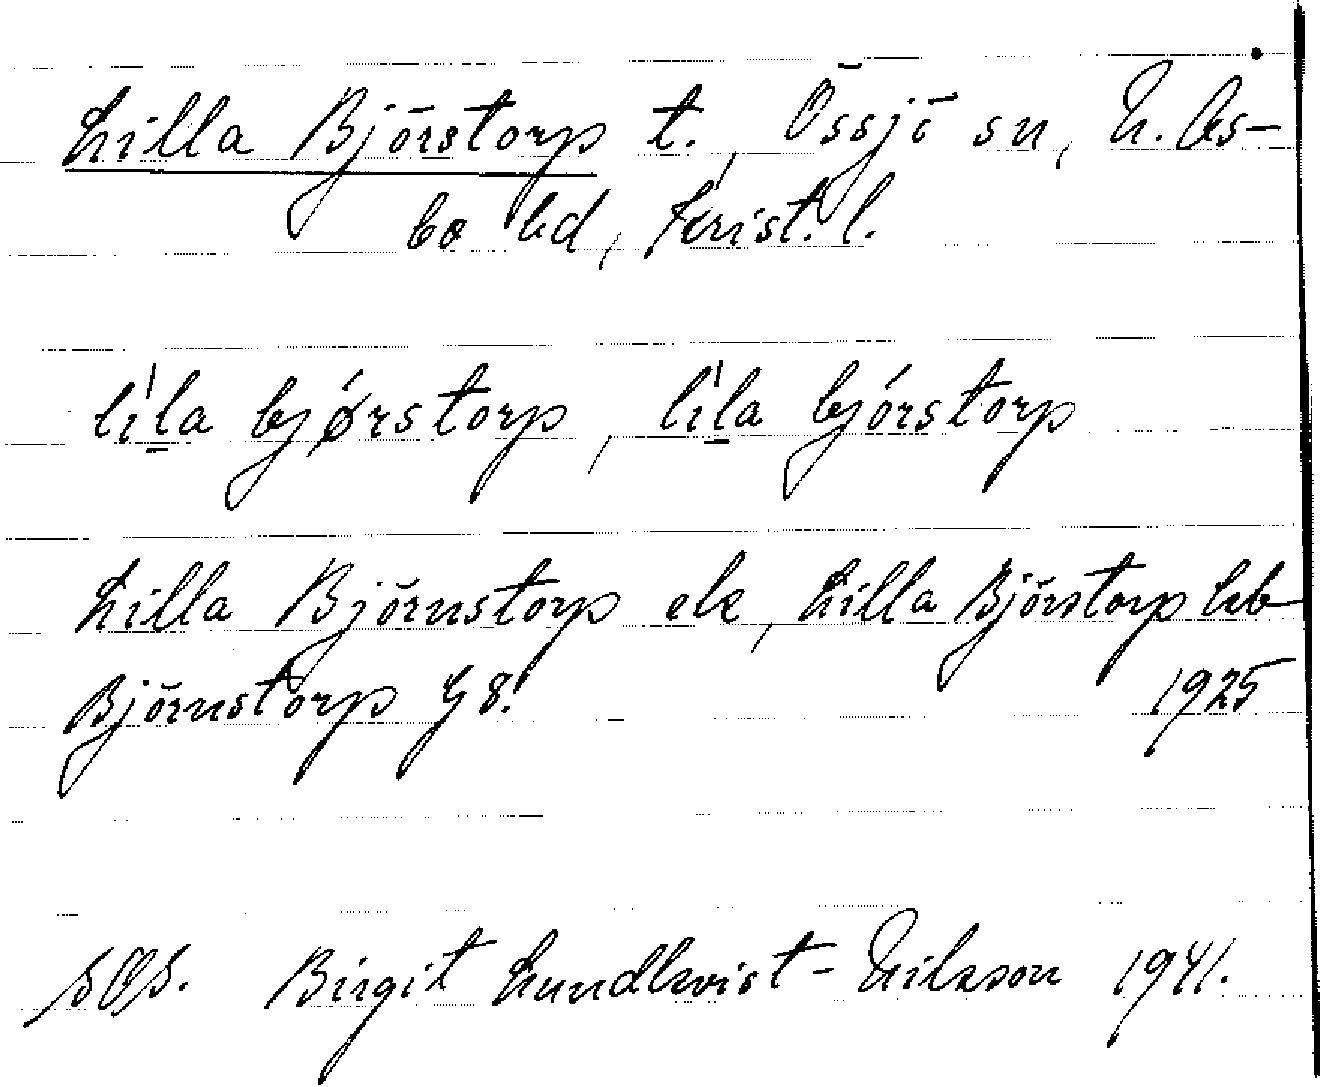 Lilla Björstorp t., Össjö sn, N. Ås-
bo hd, Krist. l.
lila bjørstorp, lila bjórstorp
Lilla Björnstorp ek, Lilla Björstorp hb
Björnstorp G8!                1925
SOS. Birgit Lundkvist-Nilsson 1941.